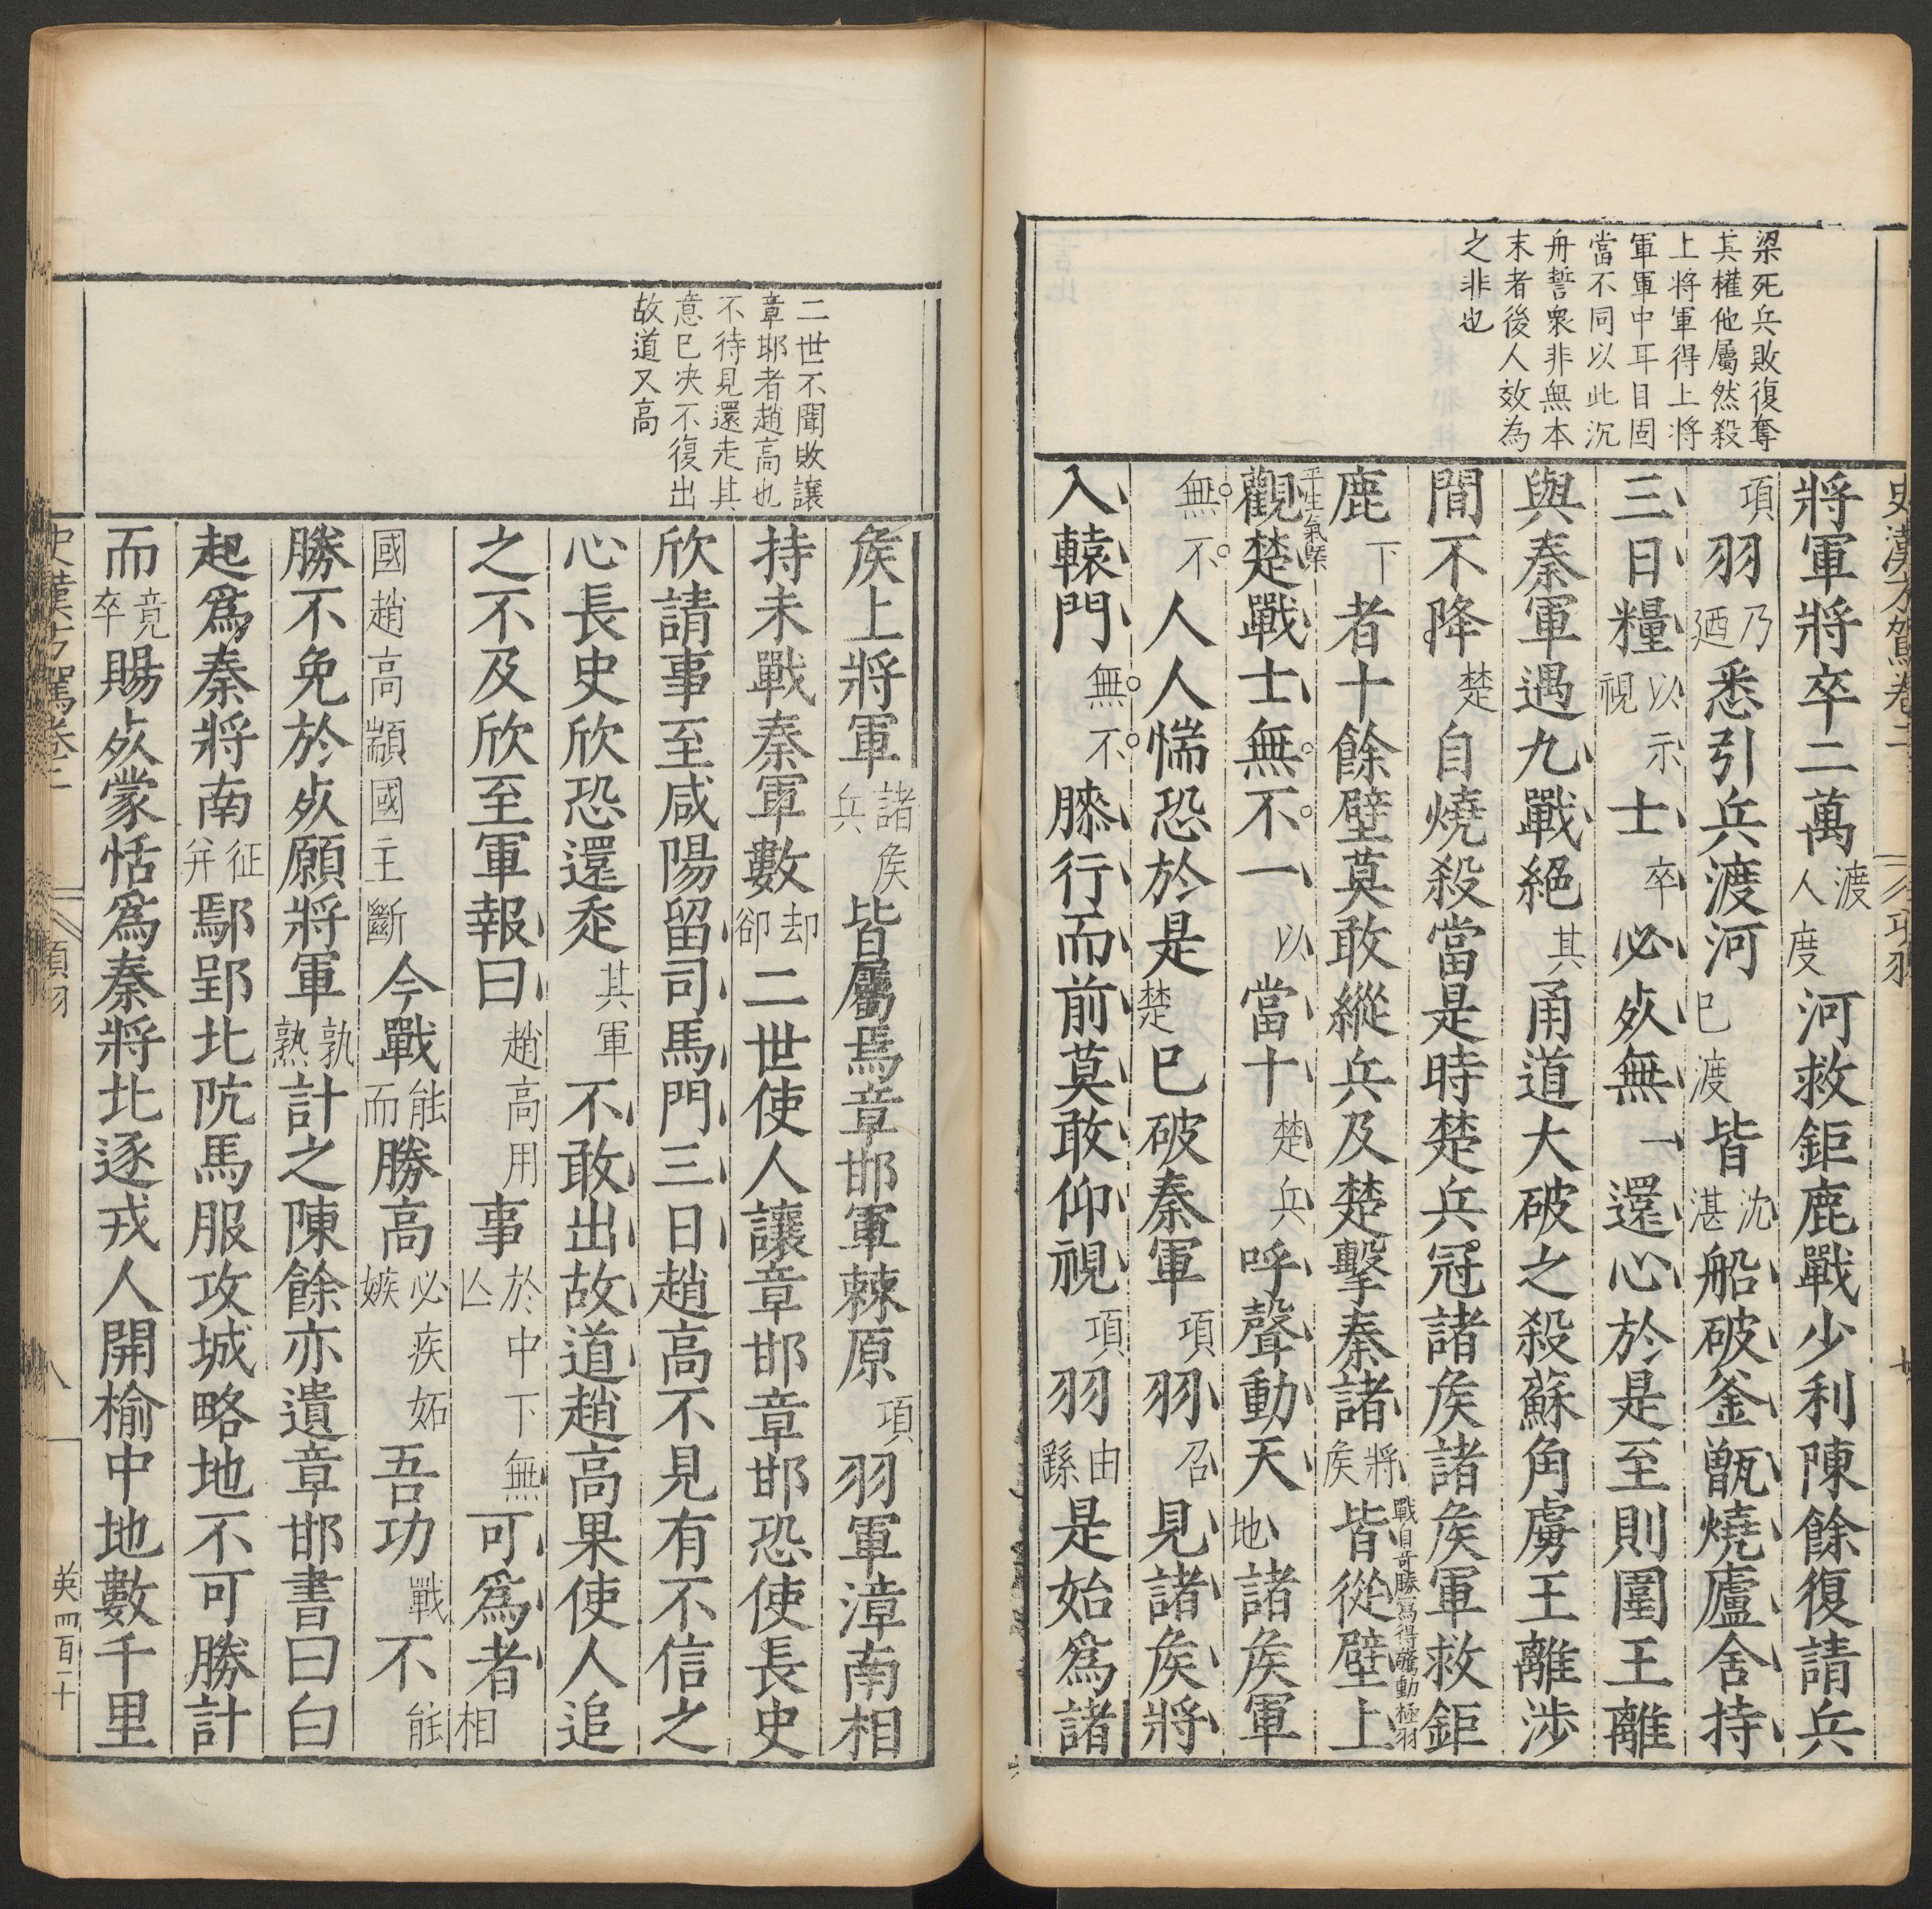 梁死兵敗復奪
其權他屬然殺
上將軍得上將
軍軍中耳目固
當不同以此沉
舟誓衆非無本
末者後人效為
之非也
將軍將卒二萬渡人度河救鉅鹿戰少利陳餘復請兵
項羽乃廼悉引兵渡河已渡皆沈湛船破釜甑燒廬舍持
三日糧以視示士卒必死無一還心於是至則圍王離
與秦軍遇九戰絕其甬道大破之殺蘇角虜王離涉
間不降楚自燒殺當是時楚兵冠諸矦諸矦軍救鉅
鹿下者十餘壁莫敢縱兵及楚擊秦諸將矦皆從壁上
觀楚戰士無不一以當十楚兵呼聲動天地諸矦軍
無不人人惴恐於是楚已破秦軍項羽召見諸矦將
入轅門無不膝行而前莫敢仰視項羽由繇是始爲諸
二世不聞敗讓
章邯者趙高也
不待見還走其
意已决不復出
故道又高
矦上將軍諸矦兵皆屬焉章邯軍棘原項羽軍漳南相
持未戰秦軍數却卻二世使人讓章邯章邯恐使長史
欣請事至咸陽留司馬門三日趙高不見有不信之
心長史欣恐還走其軍不敢出故道趙高果使人追
之不及欣至軍報曰趙高用事於中下無亾可爲者相
國趙高顓國主斷今戰能而勝高必疾妬嫉吾功戰不能
勝不免於死願將軍孰熟計之陳餘亦遺章邯書曰白
起爲秦將南征并鄢郢北阬馬服攻城略地不可勝計
而竟卒賜死蒙恬爲秦將北逐戎人開榆中地數千里
項羽
八
英四百二十